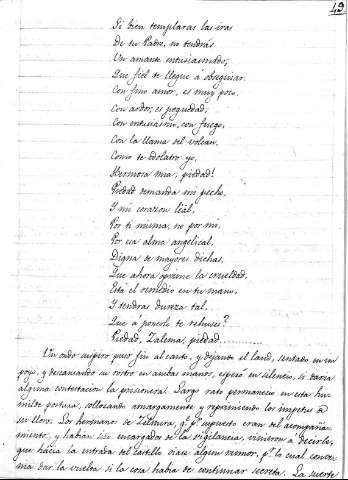 49
Si bien templaras las iras
De tu Padre, no tendrás
Un amante entusiasmado,
Que fiél te llegue á obsequiar.
Con fino amor, es muy poco,
Con ardor, es
Con entusiasmo, con fuego,
Con la llama del volcan.
Como te idolatro yo,
Hermosa mia, piedad!
Piedad demanda mi pecho,
Y mi corazon leál,
Por ti misma, no por mi.
Por esa alma angelical,
Digna de mayores dichas,
Que ahora oprime la crueldad;
Está el remedio en tu mano,
Y tendras dureza tal,
Que á ponerle te rehuses?
Piedad, Zalema, piedad
Un ondo suspiro puso fin al canto, y dejando el laud, sentado en un
poyo, y descansando su rostro en ambas manos, esperó en silencio, si daria
alguna contestacion la prisionera. Largo rato permanecio en esta hu-
milde postura, sollozando amargamente y reprimiendo los impetus de
su lloro. Los hermanos de Zelmira, q.e p.r supuesto eran del acompaña-
miento, y habian sido encargados de la vigilancia, vinieron á decirle,
que hácia la entrada del castillo oian algun rumor, p.r lo cual conve-
nia dar la vuelta si la cosa habia de continuar secreta. La suerte